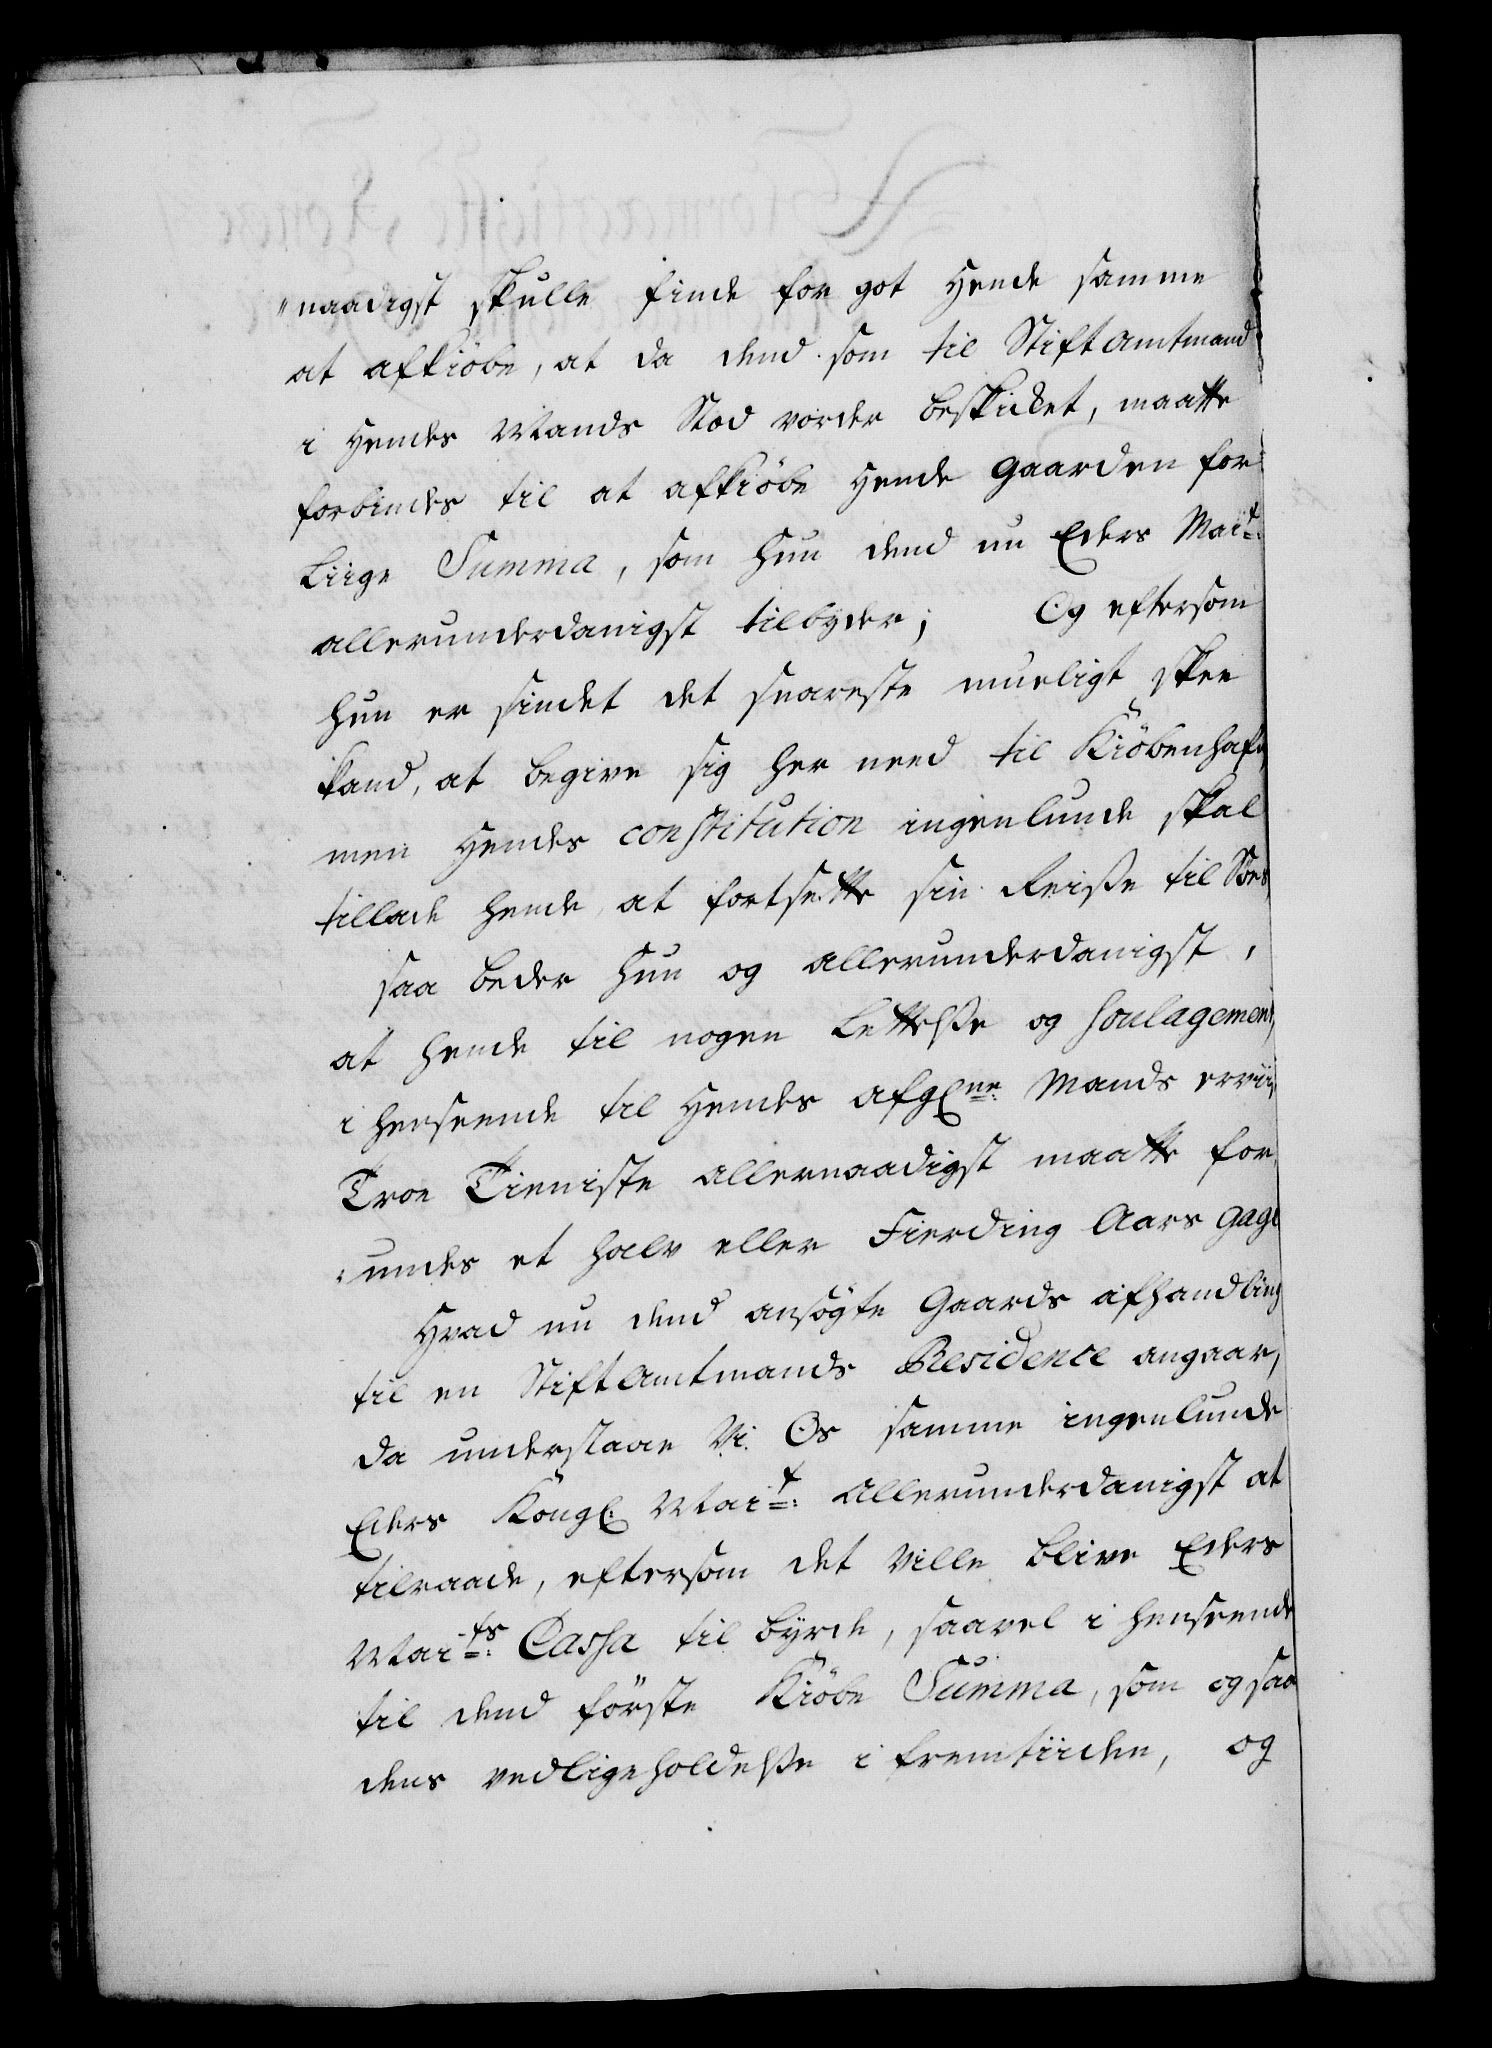 "naadigst skulle finde for got Hende samme
at afkiöbe, at da dend som til Stiftamtmand
i Hendes Mands Stæd vorder beskicket, maatte
forbindes til at afkiöbe Hende Gaarden for
Liige Summa, som hun dend nu Eders Maiᵗ:
allerunderdanigst tilbyder; Og eftersom
hun er sindet det snareste mueligt skee
kand, at begive sig her need til Kiöbenhafn,
men Hendes constitution ingenlunde skal
tillade hende, at fortsette sin Reise til Söes,
saa beder hun og allerunderdanigst,
at hende til nogen Lettelse og soulagement,
i henseende til Hendes afgl:ne Mands erviiste
Troe Tieniste allernaadigst maatte for-
undes et halv eller Fierding Aars gage
Hvad nu dend ansögte Gaards afhandling
til en Stiftamtmands Residence angaar,
da understaae Vi Os samme ingenlunde
Eders Kongl: Maiᵗ: allerunderdanigst at
tilraade, eftersom det ville blive Eders
Maiᵗˢ: Cassa til byrde, saavel i henseende
til dend förste Kiöbe Summa, som og saa
dens vedligeholdelse i fremtiiden, og